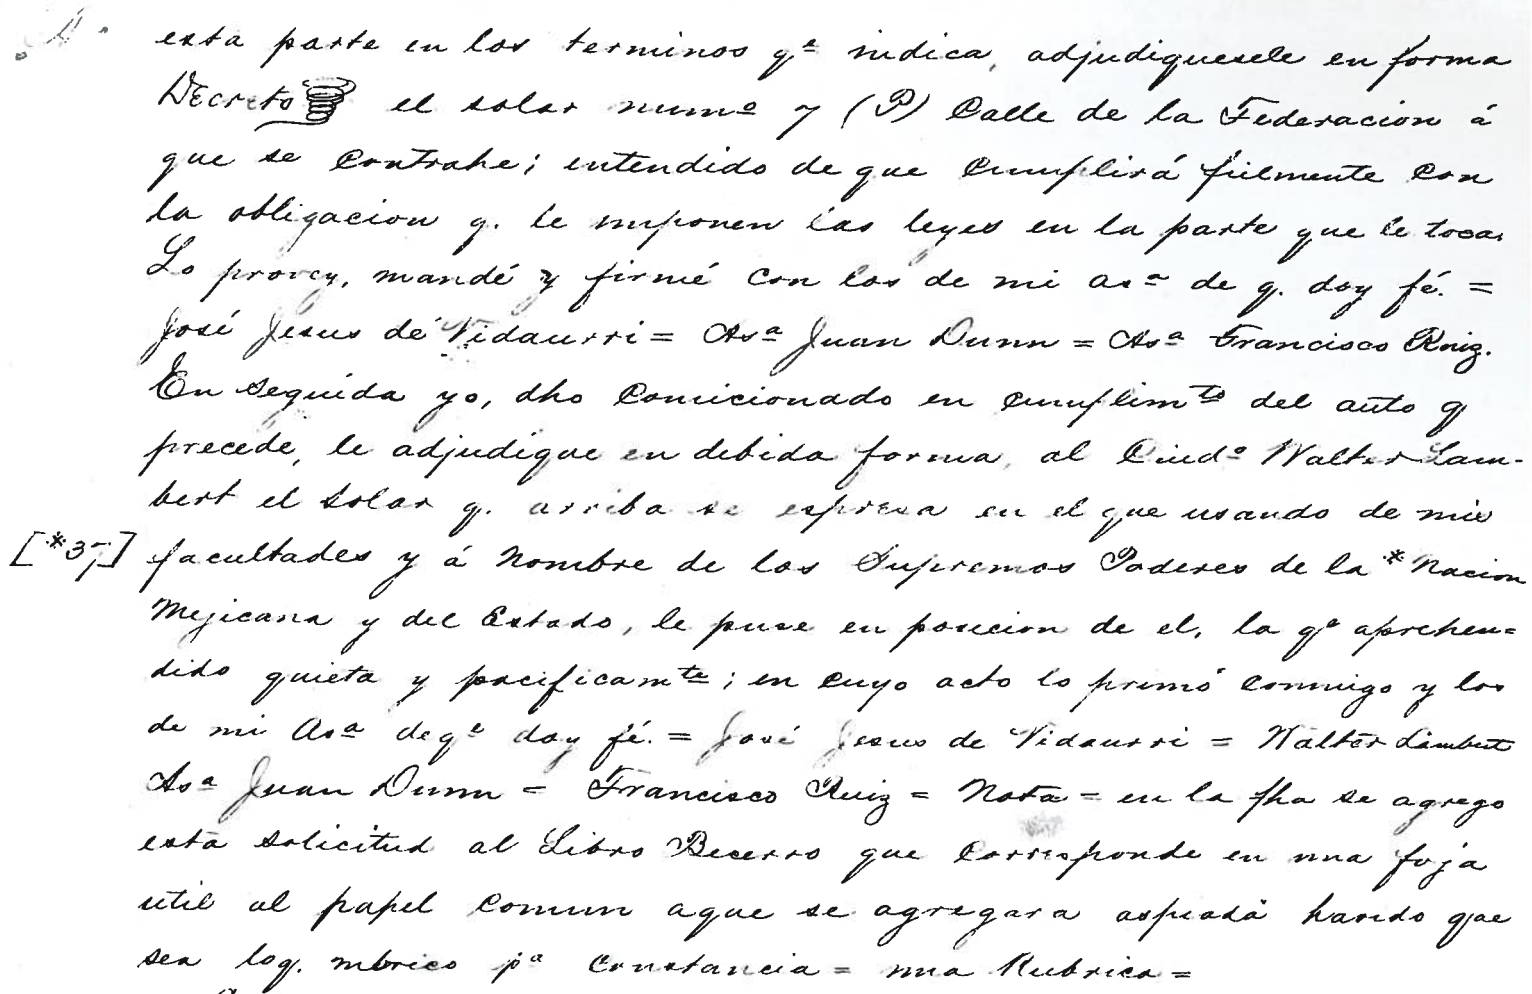 esta parte en los terminos qᵉ indica, adjudiquesele en forma
Decreto el solar numº 7 (P) Calle de la Federacion á
que se contrahe; entendido de que cumplirá fielmente con
la obligacion q. le imponen las leyes en la parte que le toca.
Lo provey, mandé y firmé con los de mi asª de q. doy fé. =
José Jesus de Vidaurri = Asª Juan Dunn = Asª Francisco Ruiz.
En seguida yo, dho Comicionado en cumplimᵗᵒ del auto q
precede, le adjudique en debida forma, al Ciudº Walter Lam-
bert el solar q. arriba se espresa en el que usando de mis
[*3-] facultades y á nombre de los Supremos Poderes de la * Nacion
Mejicana y del Estado, le puse en posicion de el, la qᵉ aprehen=
dido quieta y pacificamᵗᵉ; en cuyo acto lo firmó conmigo y los
de mi Asª de qᵉ doy fé. = José Jesus de Vidaurri = Walter Lambert
Asª Juan Dunn = Francisco Ruiz = Nota = en la fha se agrego
esta solicitud al Libro Becerro que corresponde en una foja
util al papel comun aque se agregara que
sea pª constancia = una Rubrica =